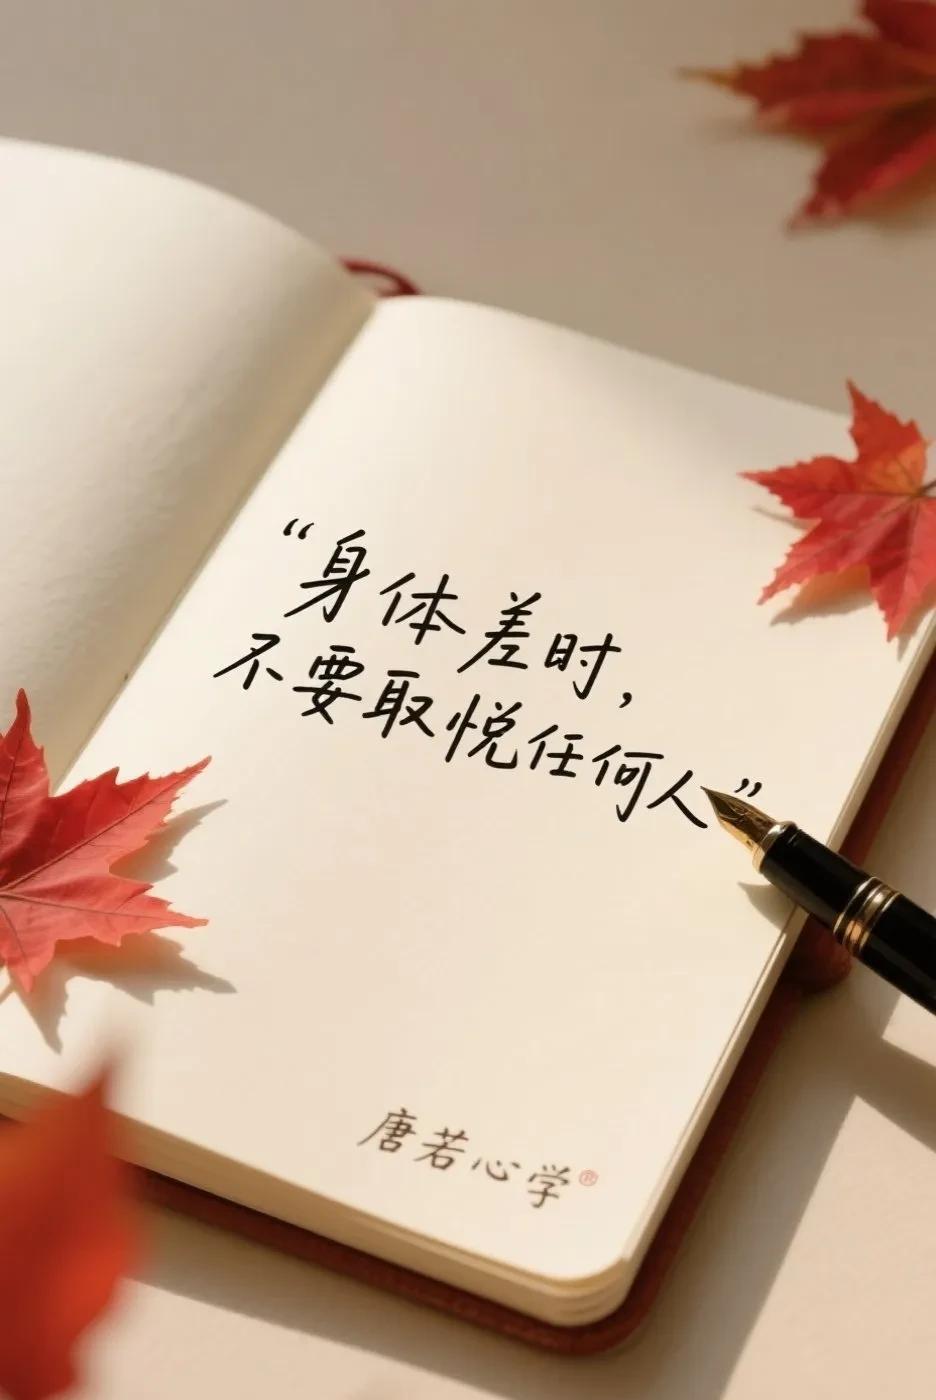 “身体差时,
不要取悦任何人”
唐若心学®